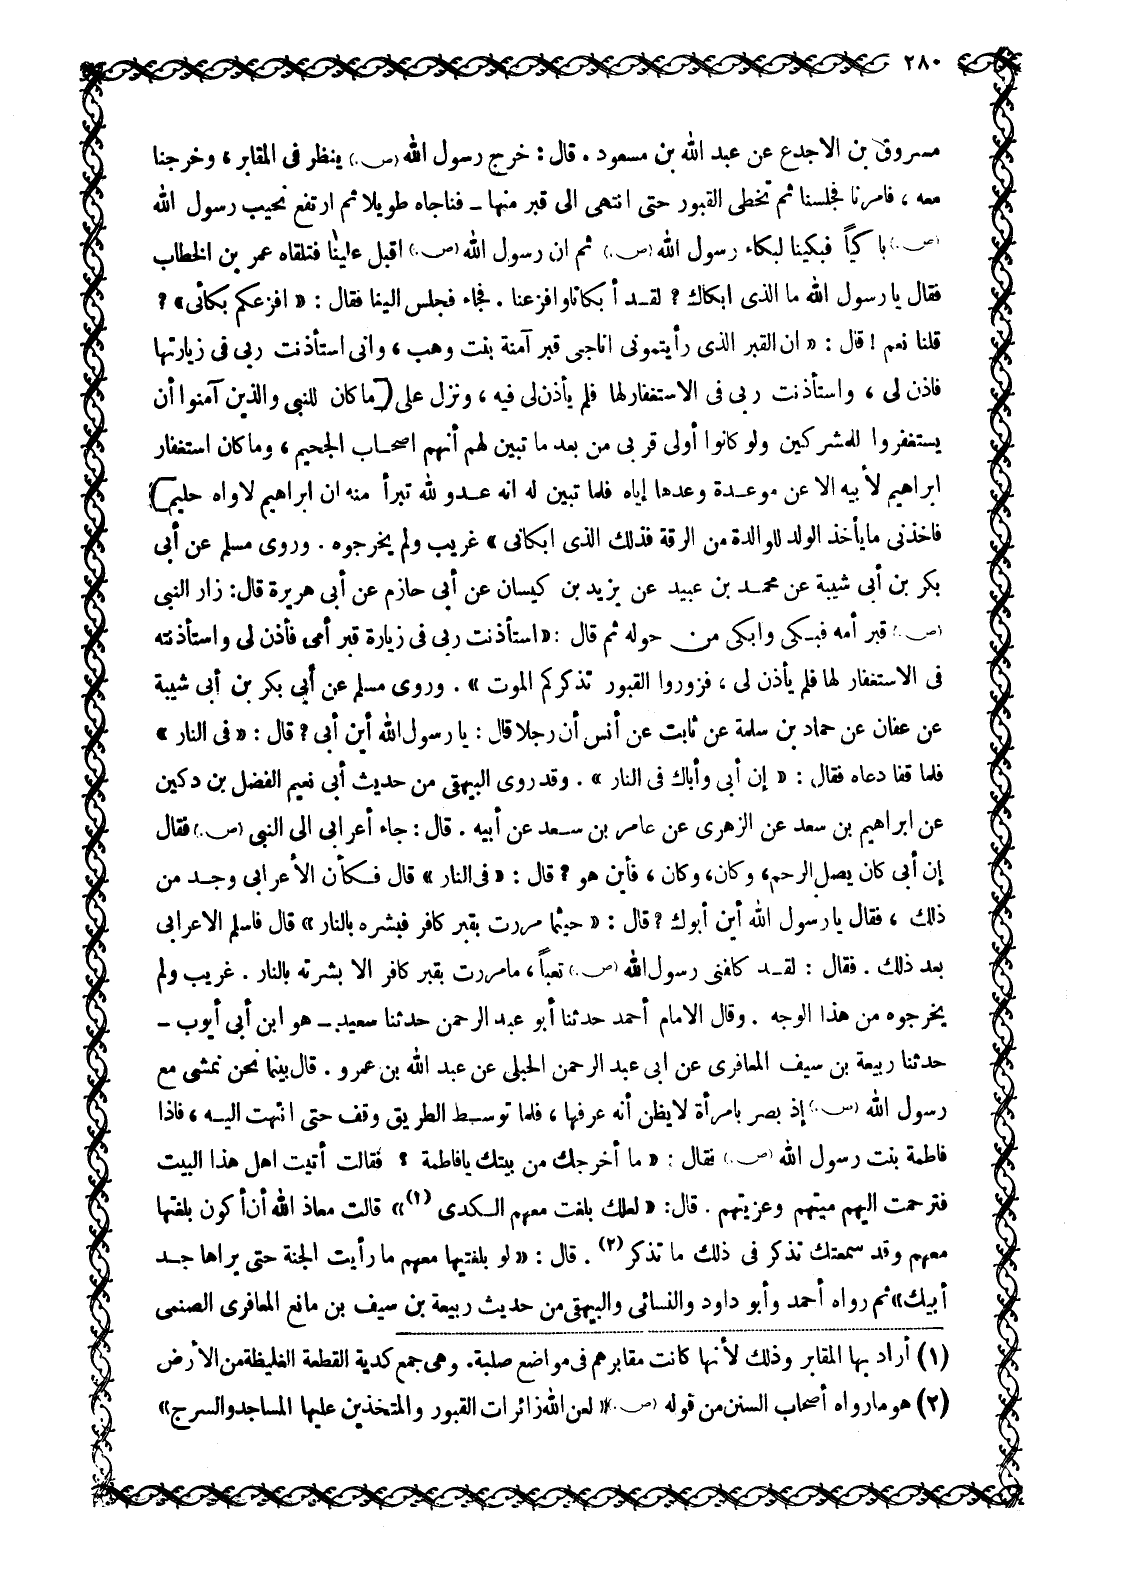 ٢٨٠
مسروق بن الاجدع عن عبد الله بن مسعود . قال : خرج رسول الله (ص.) ينظر فى المقابر ، وخرجنا
معه ، فامرنا فجلسنا ثم تخطى القبور حتى انتهى الى قبر منها ــ فناجاه طويلا ثم ارتفع نحيب رسول الله
(ص.) باكياً فبكينا لبكاء رسول الله (ص.) ثم ان رسول الله (ص.) اقبل علينا فتلقاه عمر بن الخطاب
فقال يا رسول الله ما الذى ابكاك ? لقد أبكانا وافزعنا . فجاء فجلس الينا فقال : « افزعكم بكائى » ?
قلنا نعم ! قال : « ان القبر الذى رأيتمونى اناجى قبر آمنة بنت وهب ، وانى استأذنت ربى فى زيارتها
فاذن لى ، واستأذنت ربى فى الاستغفار لها فلم يأذن لى فيه ، ونزل على (ما كان للنبي والذين آمنوا أن
يستغفروا للمشركين ولو كانوا أولى قربى من بعد ما تبين لهم أنهم اصحاب الجحيم ، وما كان استغفار
ابراهيم لأبيه الا عن موعدة وعدها إياه فلما تبين له انه عدو لله تبرأ منه ان ابراهيم لاواه حليم)
فاخذنى ما يأخذ الولد للوالدة من الرقة فذلك الذى ابكانى » غريب ولم يخرجوه . وروى مسلم عن أبى
بكر بن أبى شيبة عن محمد بن عبيد عن يزيد بن كيسان عن أبى حازم عن أبى هريرة قال: زار النبى
(ص.) قبر أمه فبكى وابكى من حوله ثم قال : « استأذنت ربى فى زيارة قبر أمى فأذن لى واستأذنته
فى الاستغفار لها فلم يأذن لى ، فزوروا القبور تذكركم الموت » . وروى مسلم عن أبي بكر بن أبى شيبة
عن عفان عن حماد بن سلمة عن ثابت عن أنس أن رجلا قال : يا رسول الله أين أبى ? قال : « فى النار »
فلما قفا دعاه فقال : « إن أبى وأباك فى النار » . وقد روى البيهقى من حديث أبى نعيم الفضل بن دكين
عن ابراهيم بن سعد عن الزهرى عن عامر بن سعد عن أبيه . قال : جاء أعرابى الى النبى (ص.) فقال
إن أبى كان يصل الرحم، وكان، وكان ، فأين هو ? قال : « فى النار » قال فكأن الأعرابى وجد من
ذلك ، فقال يا رسول الله أين أبوك ? قال : « حيثما مررت بقبر كافر فبشره بالنار » قال فاسلم الاعرابى
بعد ذلك . فقال : لقد كلفنى رسول الله (ص.) تعباً ، ما مررت بقبر كافر الا بشرته بالنار . غريب ولم
يخرجوه من هذا الوجه . وقال الامام أحمد حدثنا أبو عبد الرحمن حدثنا سعيد ــ هو ابن أبي أيوب ــ
حدثنا ربيعة بن سيف المعافرى عن ابى عبد الرحمن الحبلى عن عبد الله بن عمرو . قال بينما نحن نمشى مع
رسول الله (ص.) إذ بصر بامرأة لا يظن أنه عرفها ، فلما توسط الطريق وقف حتى انتهت اليه ، فاذا
فاطمة بنت رسول الله (ص.) فقال : « ما أخرجك من بيتك يا فاطمة ? فقالت أتيت اهل هذا البيت
فترحمت اليهم ميتهم وعزيتهم . قال: « لعلك بلغت معهم الكدى (١) » قالت معاذ الله أن أكون بلغتها
معهم وقد سمعتك تذكر فى ذلك ما تذكر (٢) . قال : « لو بلغتيها معهم ما رأيت الجنة حتى يراها جد
أبيك » ثم رواه أحمد وأبو داود والنسائى والبيهقى من حديث ربيعة بن سيف بن مانع المعافرى الصنمى
(١) أراد بها المقابر وذلك لأنها كانت مقابرهم فى مواضع صلبة. وهى جمع كدية القطعة الغليظة من الأرض
(٢) هو ما رواه أصحاب السنن من قوله (ص.) « لعن الله زائرات القبور والمتخذين عليها المساجد والسرج »